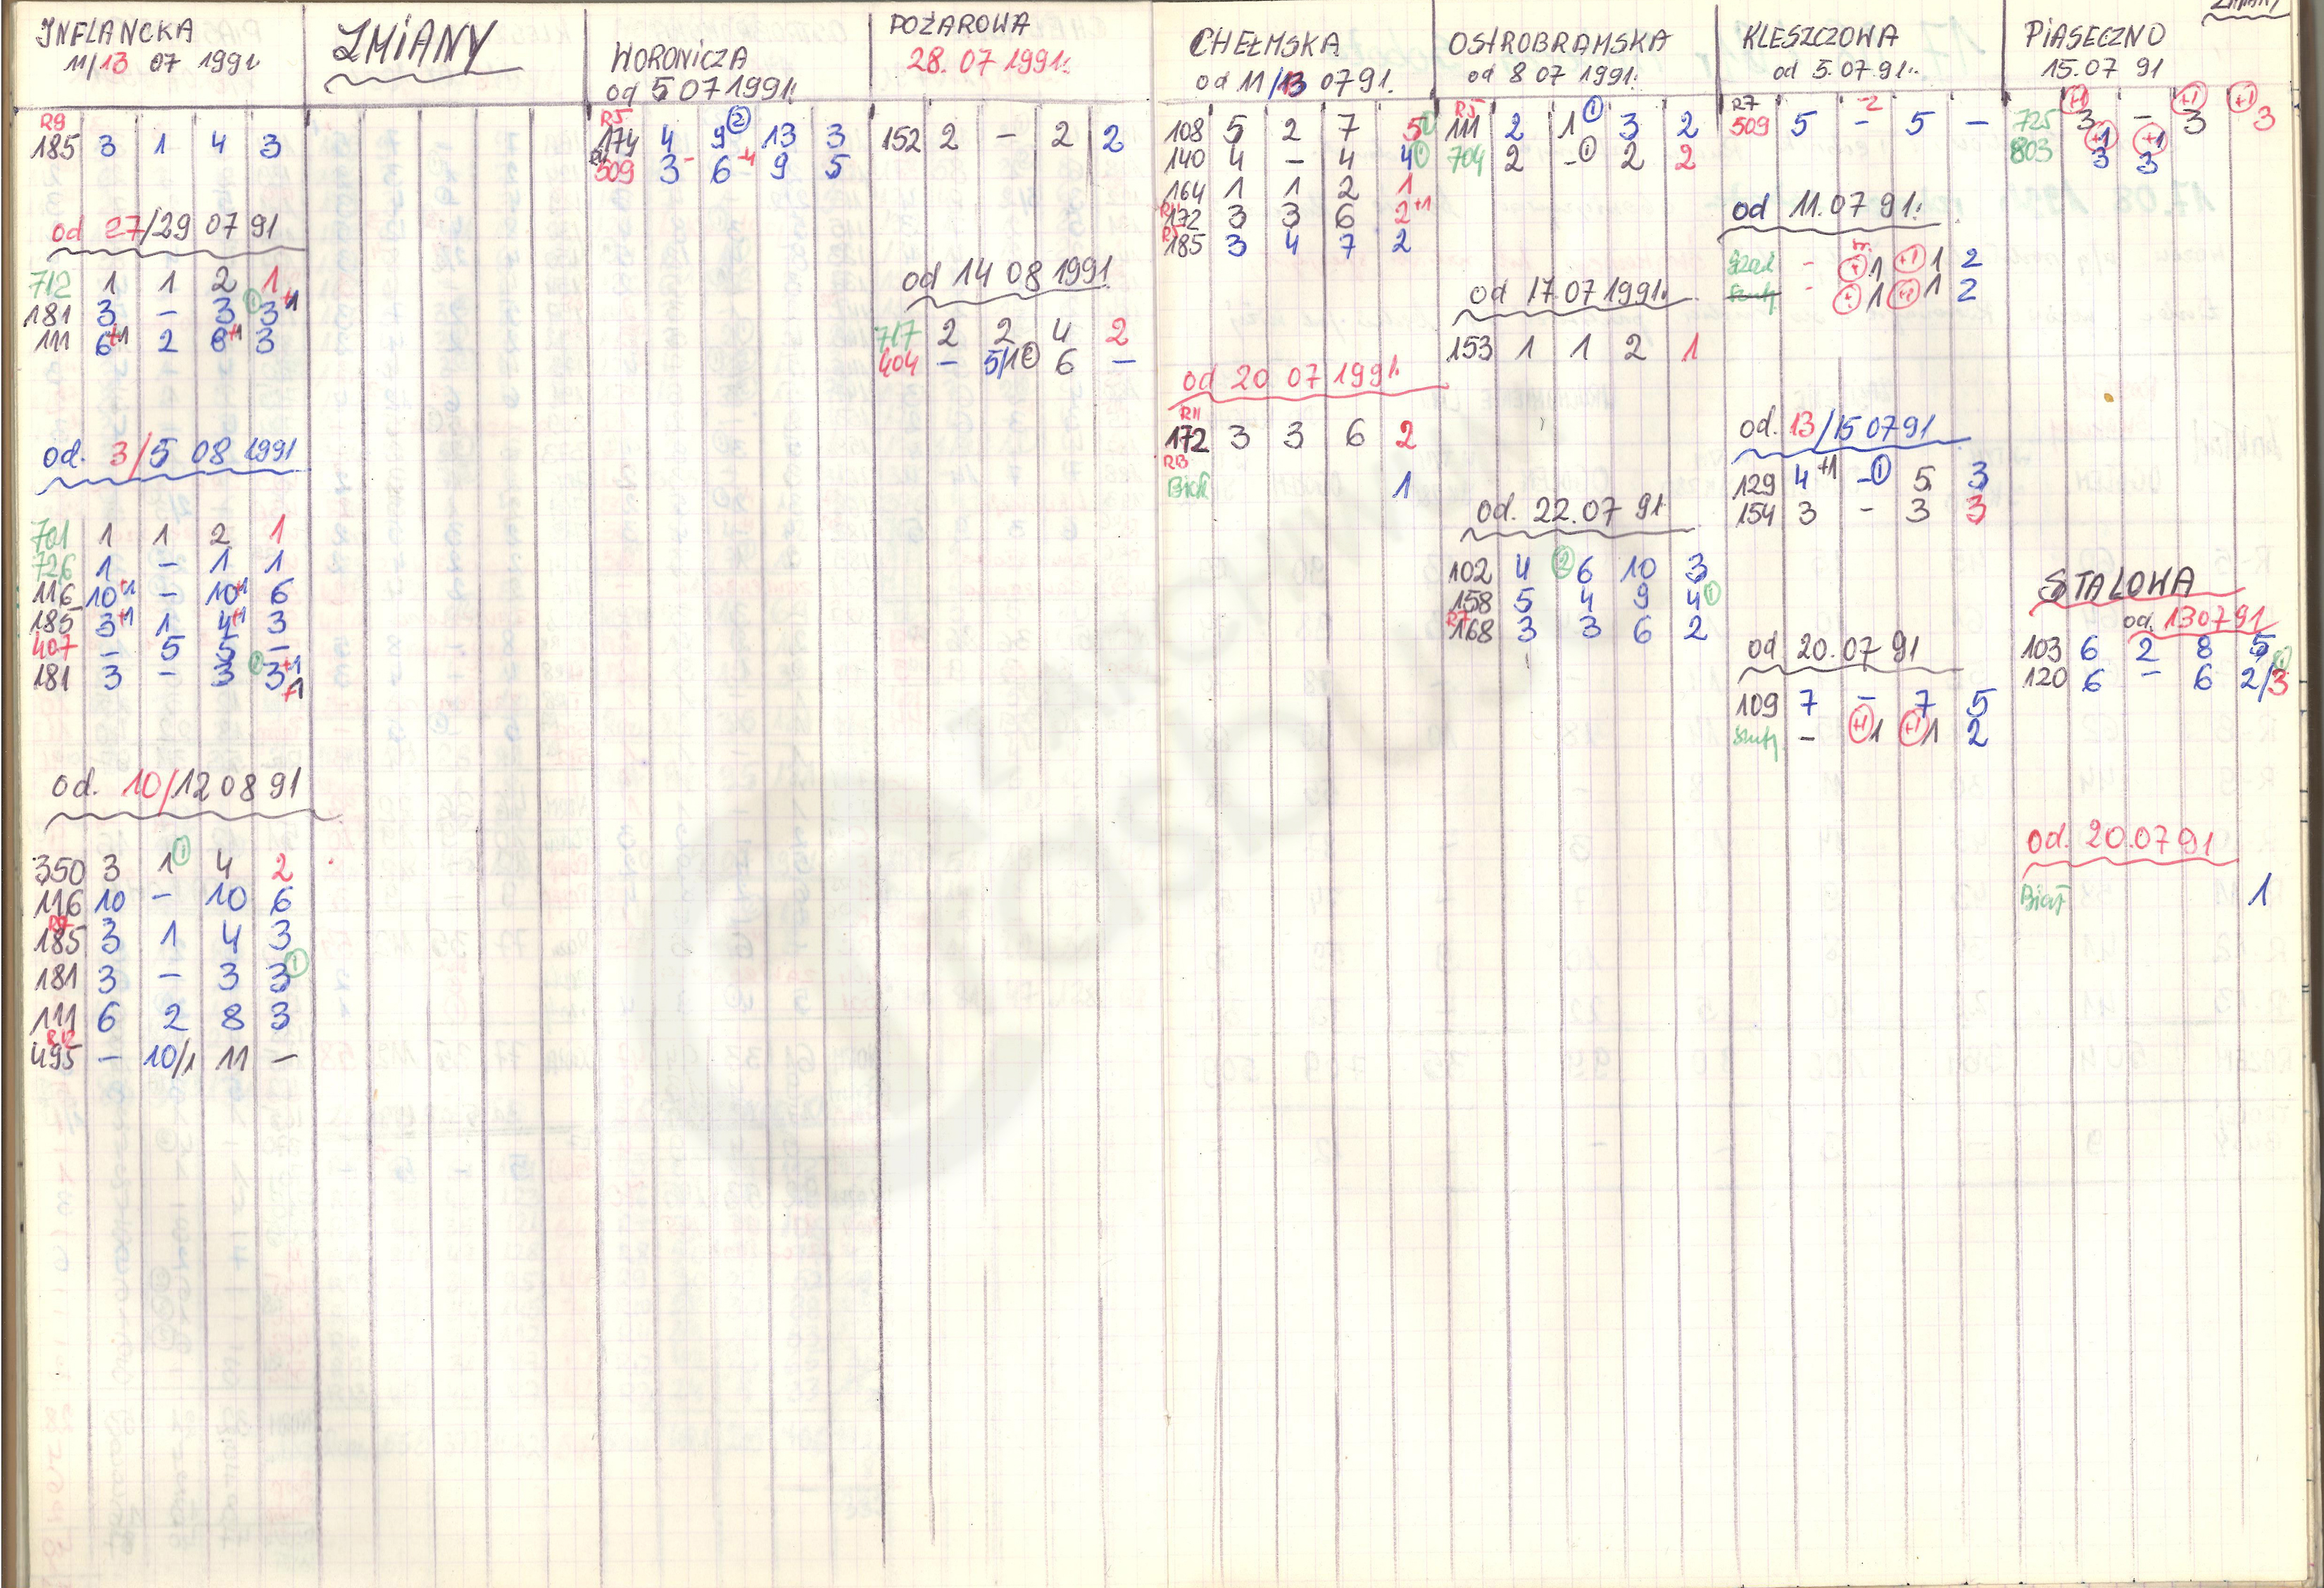 INFLANCKA
11/13 07 1991
R9
185 3 1 4 3
od 27/29 07 91
712 1 1 2 1
181 3 - 3 1 3 +1
111 6 +1 2 8 +1 3
od. 3/5 08 1991
701 1 1 2 1
726 1 - 1 1
116 10 +1 - 10 +1 6
185 3 +1 1 4 +1 3
407 - 5 5 -
181 3 - 3 3 +1
+1
od. 10/12 08 91
350 3 1 1 4 2
116 10 - 10 6
R9
185 3 1 4 3
181 3 - 3 3 1
111 6 2 8 3
R12
495 - 10/1 11 -
ZMIANY
WORONICZA
od 5 07 1991r.
R5
174 4 9 2 13 3
509 3 - 6 +4 9 5
POŻAROWA
28. 07 1991r.
152 2 - 2 2
od 14 08 1991
717 2 2 4 2
404 - 5/1 6 -
CHEŁMSKA
od 11/13 07 91.
108 5 2 7 5 1
140 4 - 4 4 1
164 1 1 2 1
R11
172 3 3 6 2 +1
185 3 4 7 2
od 20 07 1991.
R11
172 3 3 6 2
R13
Biał 1
OSTROBRAMSKA
od 8 07 1991.
R5
111 2 1 1 3 2
704 2 - 1 2 2
od 17.07 1991.
153 1 1 2 1
od. 22.07 91
102 4 2 6 10 3
158 5 4 9 4 1
R7
168 3 3 6 2
KLESZCZOWA
od 5.07.91r.
R7
509 5 - -2 5 -
od 11.07 91.
- +1 1 +1 1 2
- 1 +1 1 2
od. 13/15 07 91
129 4 +1 - 1 5 3
154 3 - 3 3
od 20.07 91
109 7 - 7 5
- +1 1 +1 1 2
ZMIANY
PIASECZNO
15.07 91
+1 +1 +1
725 3 - 3 3
+1 +1
803 3 3
STALOWA
od. 13 07 91
103 6 2 8 5
120 6 - 6 2/3 1
od. 20.07 91
Biał 1